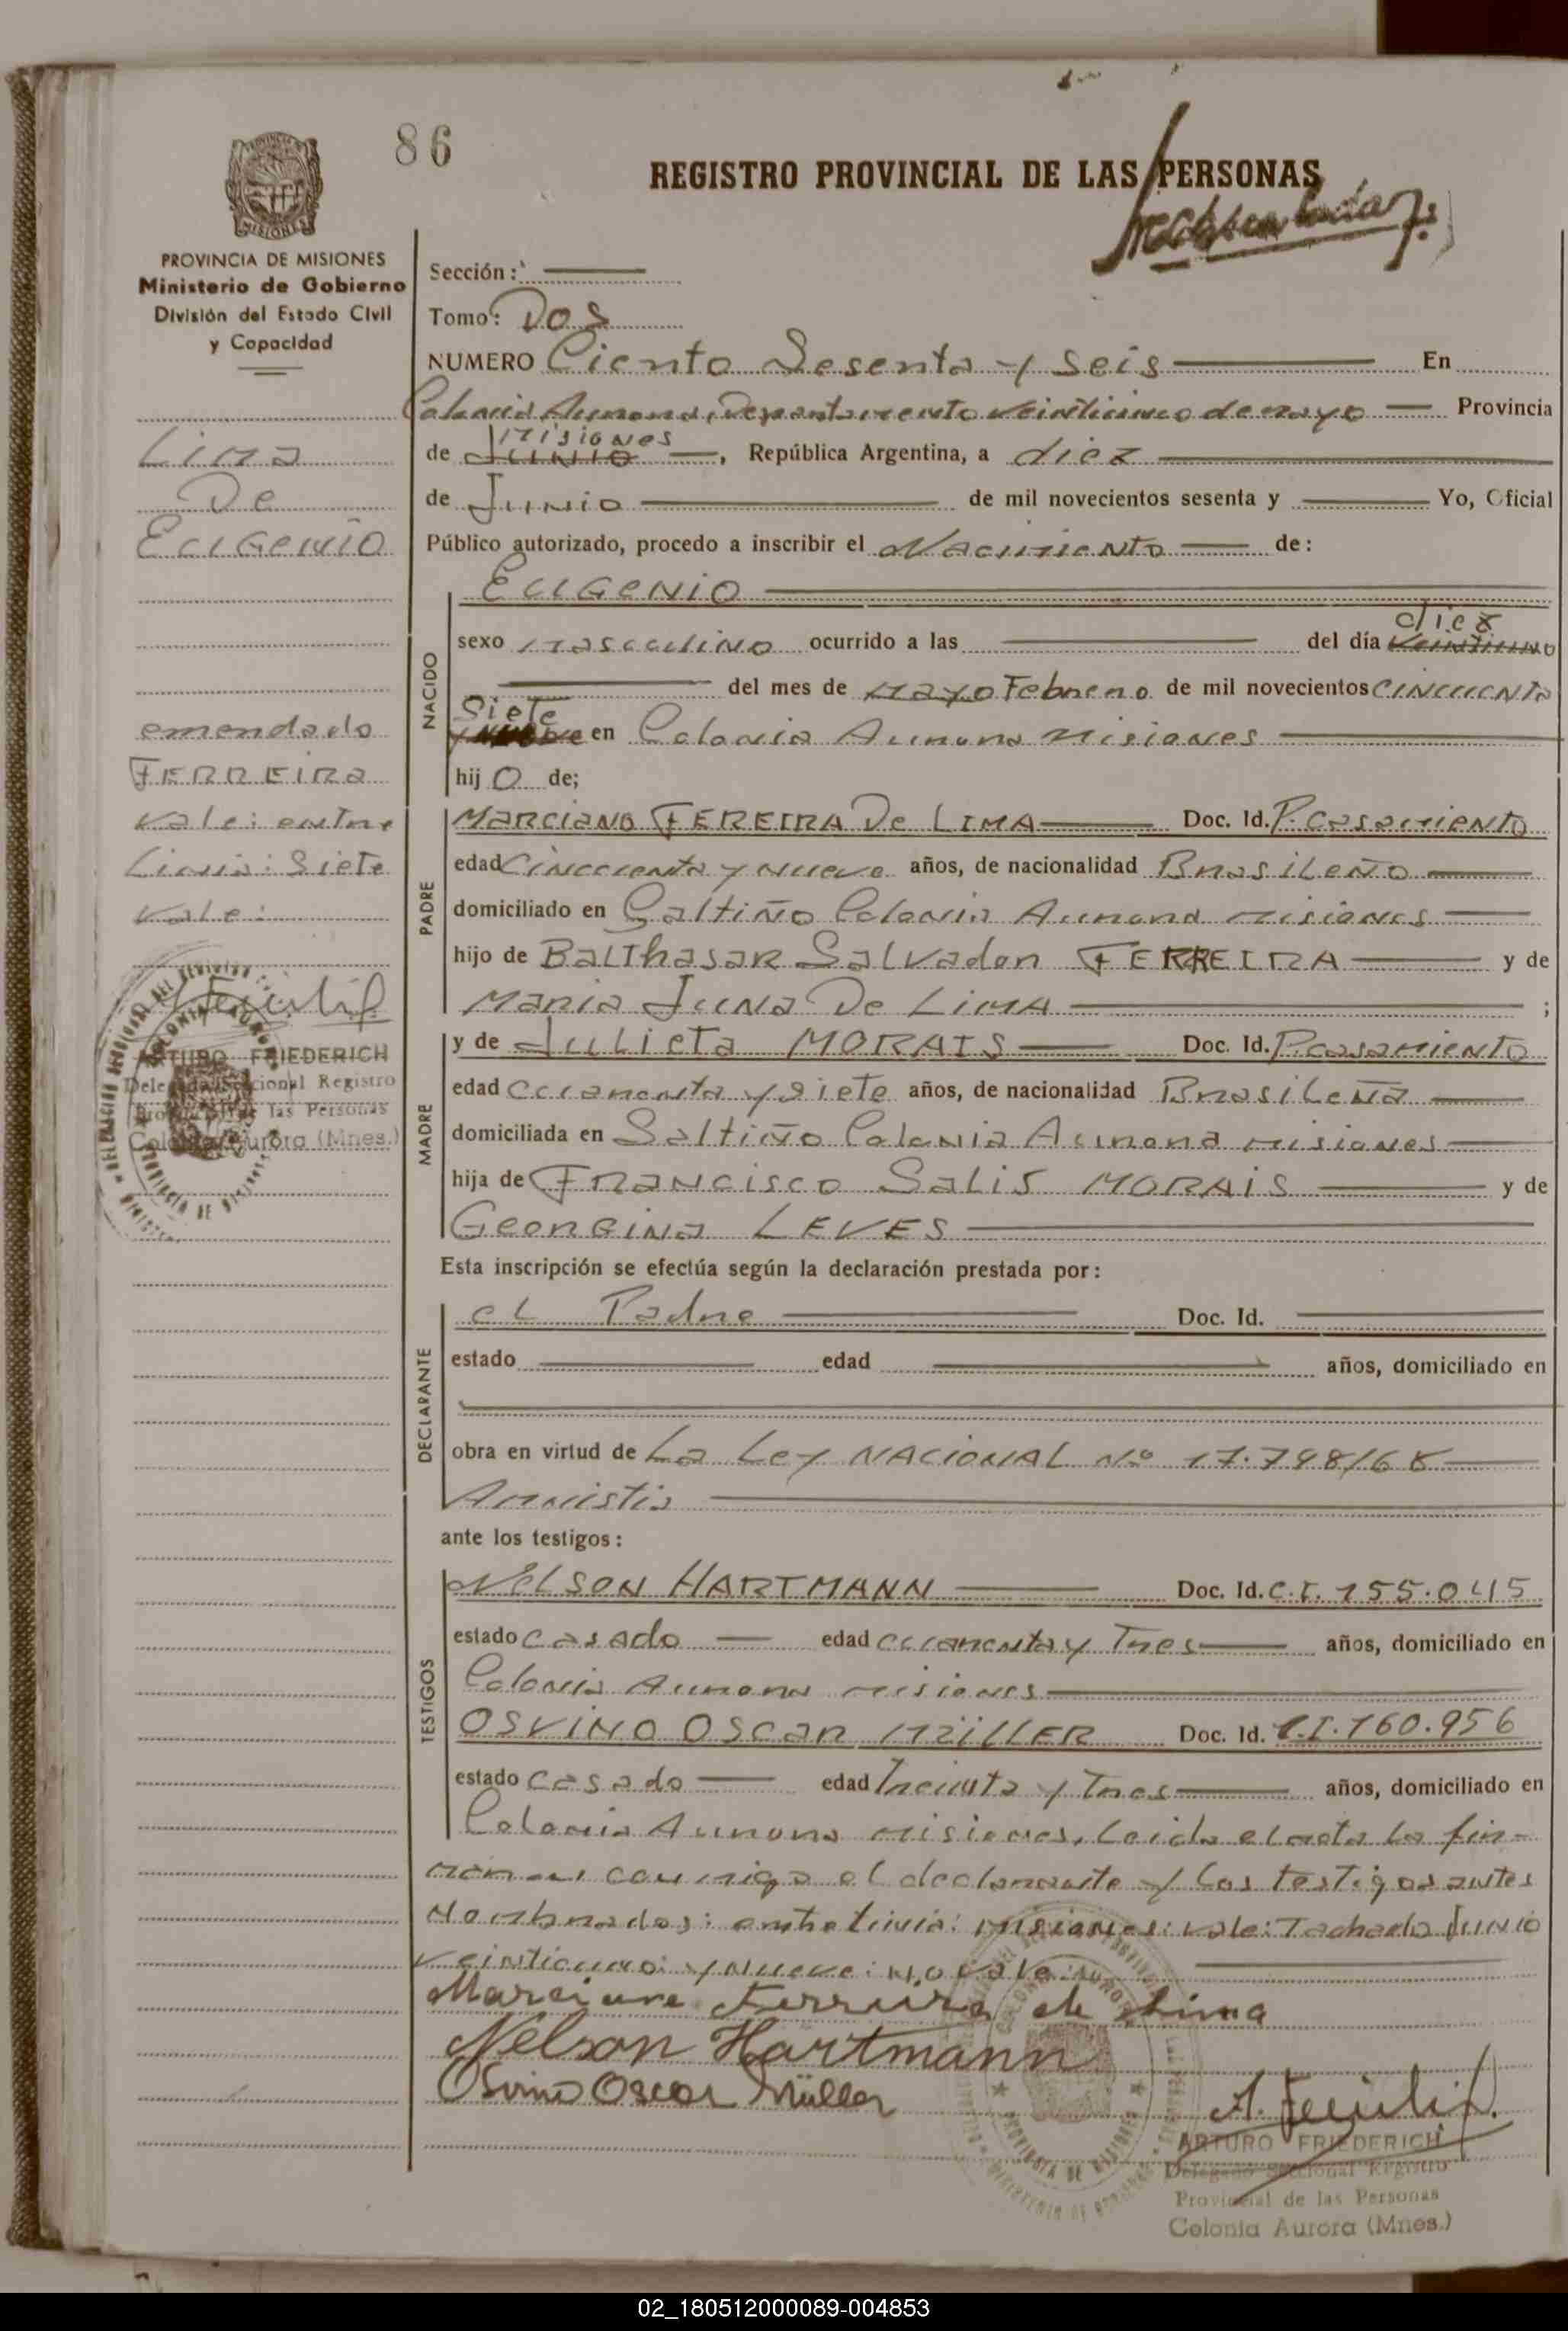 86
REGISTRO PROVINCIAL DE LAS PERSONAS
PROVINCIA DE MISIONES
Ministerio de Gobierno
División del Estado Civil
y Capacidad
Sección:
Tomo: Dos
NUMERO Ciento Sesenta y seis En
Colonia Aurora, Departamento veinticinco de mayo Provincia
misiones
de Junio, República Argentina, a diez
de Junio de mil novecientos sesenta y Yo, Oficial
Público autorizado, procedo a inscribir el Nacimiento de:
Lima
De
Eugenio
NACIDO
Eugenio
diez
sexo masculino ocurrido a las del día veintiuno
del mes de mayo Febrero de mil novecientos cincuenta
Siete
y nueve en Colonia Aurora misiones
hijo de;
emendado
FERREIRA
vale: entre
Linia: Siete
vale:
PADRE
Marciano FEREIRA De LIMA Doc. Id. P. casamiento
edad cincuenta y nueve años, de nacionalidad Brasileño
domiciliado en Saltiño Colonia Aurora misiones
hijo de Balthasar Salvador FERREIRA y de
Maria Juna De LiMA ;
MADRE
y de Julieta MORAIS Doc. Id. P. casamiento
edad cuarenta y siete años, de nacionalidad Brasileña
domiciliada en Saltiño Colonia Aurora misiones
hija de Francisco Salis MORAIS y de
Georgina LEVES
ARTURO FRIEDERICH
Delegado Seccional Registro
Provincial de las Personas
Colonia Aurora (Mnes.)
Esta inscripción se efectúa según la declaración prestada por:
DECLARANTE
el Padre Doc. Id.
estado edad años, domiciliado en
obra en virtud de La Ley NACIONAL Nº 17.798/68
Amnistia
ante los testigos:
TESTIGOS
Nelson HARTMANN Doc. Id. C.I. 155.045
estado casado edad cuarenta y Tres años, domiciliado en
Colonia Aurora misiones
OSVINO OSCAR MÜLLER Doc. Id. C.I. 160.956
estado casado edad Treinta y Tres años, domiciliado en
Colonia Aurora misiones. Leida el acta la fir-
man conmigo el declarante y los testigos antes
nombrados: entre linia: misiones: vale: Tachado Junio
veintiuno: y nueve: no vale:
Marciano Ferreira de Lima
Nelson Hartmann
Osvino Oscar Müller
ARTURO FRIEDERICH
Delegado Seccional Registro
Provincial de las Personas
Colonia Aurora (Mnes.)
02_180512000089-004853